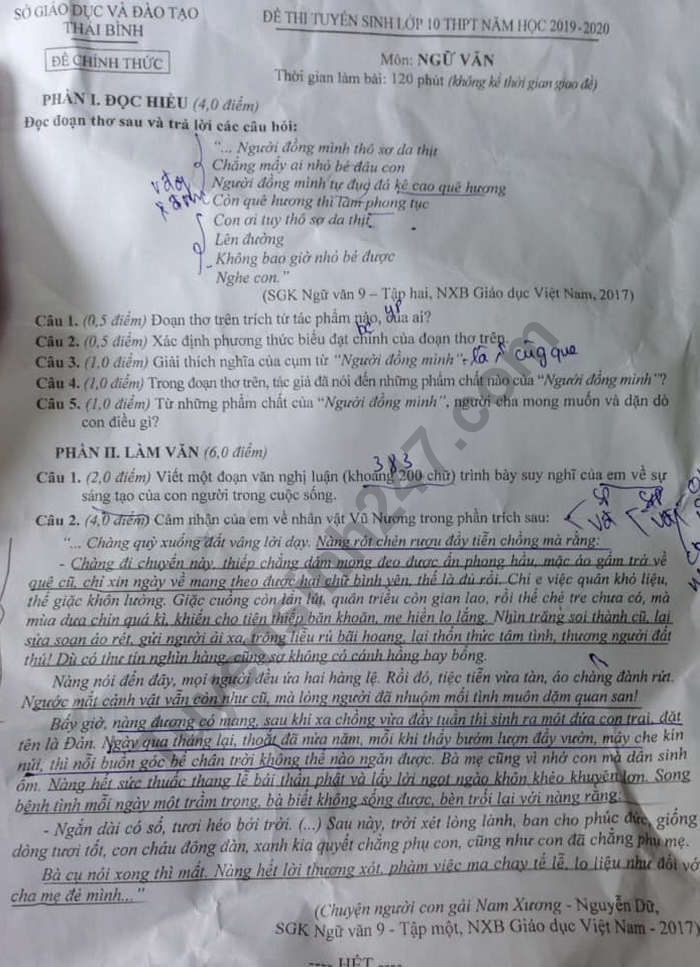 SỞ GIÁO DỤC VÀ ĐÀO TẠO
THÁI BÌNH
ĐỀ CHÍNH THỨC
ĐỀ THI TUYỂN SINH LỚP 10 THPT NĂM HỌC 2019-2020
Môn: NGỮ VĂN
Thời gian làm bài: 120 phút (không kể thời gian giao đề)
PHẦN I. ĐỌC HIỂU (4,0 điểm)
Đọc đoạn thơ sau và trả lời các câu hỏi:
"... Người đồng mình thô sơ da thịt
Chẳng mấy ai nhỏ bé đâu con
Người đồng mình tự đục đá kê cao quê hương
Còn quê hương thì làm phong tục
Con ơi tuy thô sơ da thịt
Lên đường
Không bao giờ nhỏ bé được
Nghe con."
(SGK Ngữ văn 9 – Tập hai, NXB Giáo dục Việt Nam, 2017)
Câu 1. (0,5 điểm) Đoạn thơ trên trích từ tác phẩm nào, của ai?
Câu 2. (0,5 điểm) Xác định phương thức biểu đạt chính của đoạn thơ trên.
Câu 3. (1,0 điểm) Giải thích nghĩa của cụm từ "Người đồng mình". là cùng quê
Câu 4. (1,0 điểm) Trong đoạn thơ trên, tác giả đã nói đến những phẩm chất nào của "Người đồng mình"?
Câu 5. (1,0 điểm) Từ những phẩm chất của "Người đồng mình", người cha mong muốn và dặn dò
con điều gì?
PHẦN II. LÀM VĂN (6,0 điểm)
383
Câu 1. (2,0 điểm) Viết một đoạn văn nghị luận (khoảng 200 chữ) trình bày suy nghĩ của em về sự
sáng tạo của con người trong cuộc sống.
Câu 2. (4,0 điểm) Cảm nhận của em về nhân vật Vũ Nương trong phần trích sau:
"... Chàng quỳ xuống đất vâng lời dạy. Nàng rót chén rượu đầy tiễn chồng mà rằng:
- Chàng đi chuyến này, thiếp chẳng dám mong đeo được ấn phong hầu, mặc áo gấm trở về
quê cũ, chỉ xin ngày về mang theo được hai chữ bình yên, thế là đủ rồi. Chỉ e việc quân khó liệu,
thế giặc khôn lường. Giặc cuồng còn lẩn lút, quân triều còn gian lao, rồi thế chẻ tre chưa có, mà
mùa dưa chín quá kì, khiến cho tiện thiếp băn khoăn, mẹ hiền lo lắng. Nhìn trăng soi thành cũ, lại
sửa soạn áo rét, gửi người ải xa, trông liễu rủ bãi hoang, lại thổn thức tâm tình, thương người đất
thú! Dù có thư tín nghìn hàng, cũng sợ không có cánh hồng bay bổng.
Nàng nói đến đây, mọi người đều ứa hai hàng lệ. Rồi đó, tiệc tiễn vừa tàn, áo chàng đành rứt.
Ngước mắt cảnh vật vẫn còn như cũ, mà lòng người đã nhuộm mối tình muôn dặm quan san!
Bấy giờ, nàng đương có mang, sau khi xa chồng vừa đầy tuần thì sinh ra một đứa con trai, đặt
tên là Đản. Ngày qua tháng lại, thoắt đã nửa năm, mỗi khi thấy bướm lượn đầy vườn, mây che kín
núi, thì nỗi buồn góc bể chân trời không thể nào ngăn được. Bà mẹ cũng vì nhớ con mà dần sinh
ốm. Nàng hết sức thuốc thang lễ bái thần phật và lấy lời ngọt ngào khôn khéo khuyên lơn. Song
bệnh tình mỗi ngày một trầm trọng, bà biết không sống được, bèn trối lại với nàng rằng:
- Ngắn dài có số, tươi héo bởi trời. (...) Sau này, trời xét lòng lành, ban cho phúc đức, giống
dòng tươi tốt, con cháu đông đàn, xanh kia quyết chẳng phụ con, cũng như con đã chẳng phụ mẹ.
Bà cụ nói xong thì mất. Nàng hết lời thương xót, phàm việc ma chay tế lễ, lo liệu như đối với
cha mẹ đẻ mình..."
(Chuyện người con gái Nam Xương - Nguyễn Dữ,
SGK Ngữ văn 9 - Tập một, NXB Giáo dục Việt Nam - 2017)
---- HẾT ----
tuyensinh247.com